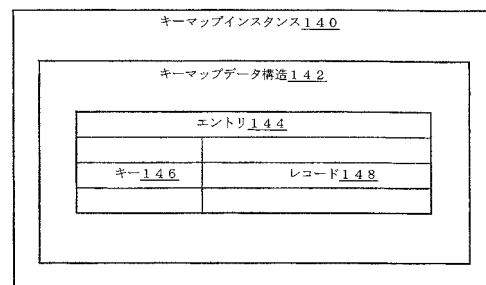 キーマップインスタンス１４０
キーマップデータ構造１４２
エントリ１４４
キー１４６ レコード１４８